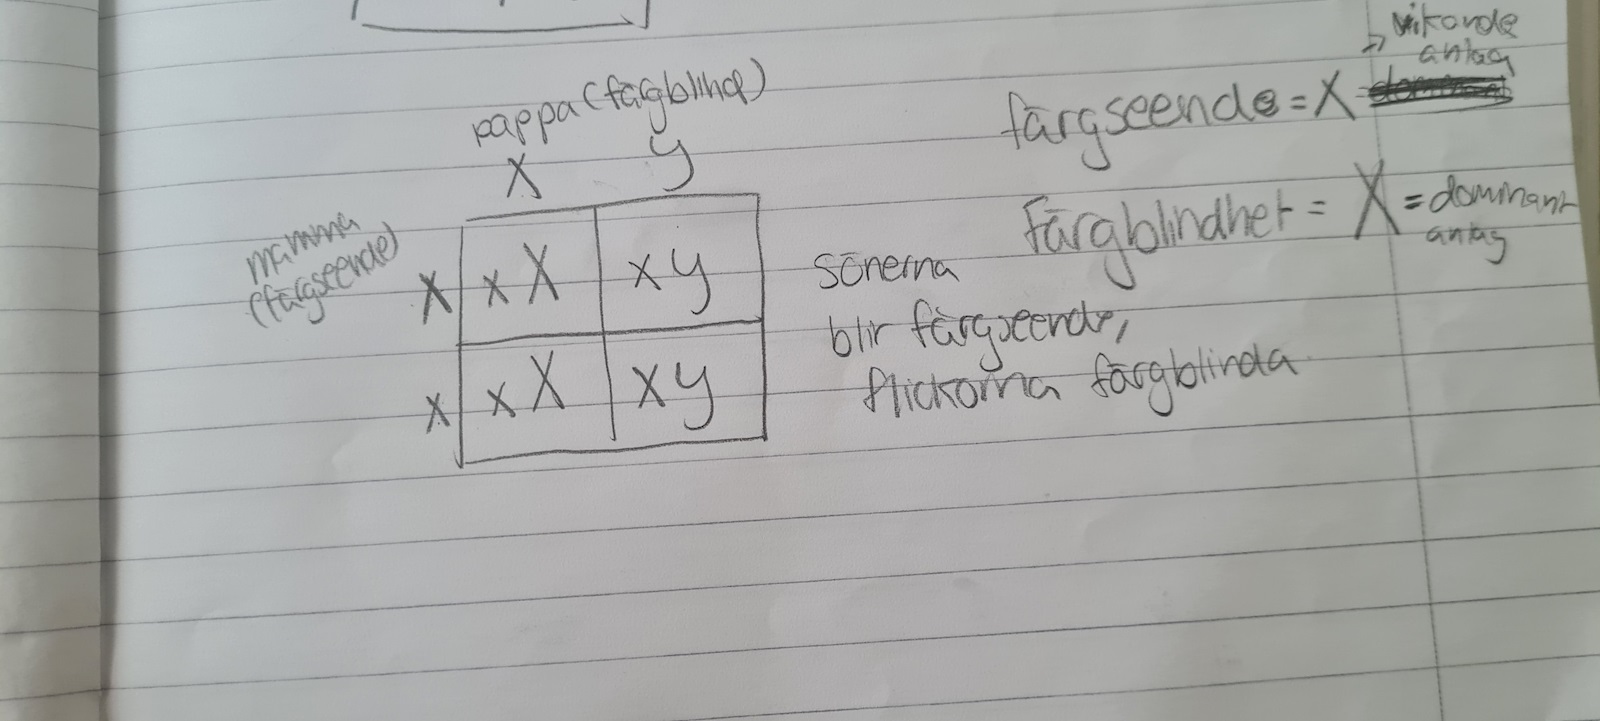 vikande
antag
pappa (färgblind)
färgseende = X
X y
mamma
(färgseende)
Färgblindhet = X = dominant
antag
X xX xy
x xX xy
sönerna
blir färgseende,
flickorna färgblinda